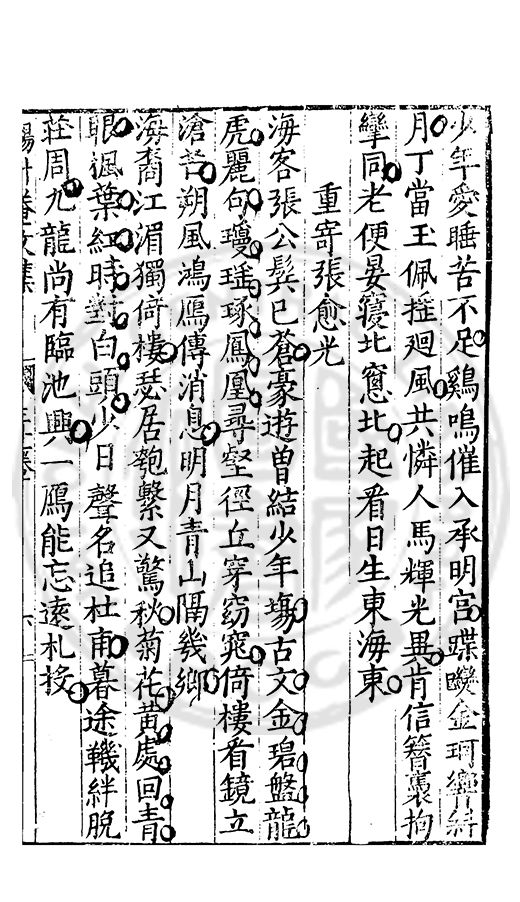 少年愛睡苦不足鷄鳴催入承明宮蹀躞金珂響
月丁當玉佩摇廻風共憐人馬輝光異肯信簪裏拘
攣同老便晏寢北窻北起看日生東海東
重寄張愈光
海客張公鬂已蒼豪遊曽結少年塲古文金碧盤龍
虎麗句瓊瑶琢鳳凰尋壑徑丘穿窈窕倚樓看鏡立
滄茫朔風鴻鴈傳消息明月青山隔幾鄉
海裔江湄獨倚樓瑟居匏繫又驚秋菊花黄處回青
眼楓葉紅時對白頭少日聲名追杜甫暮途鞿絆脱
莊周九龍尚有臨池興一鴈能忘遠札投